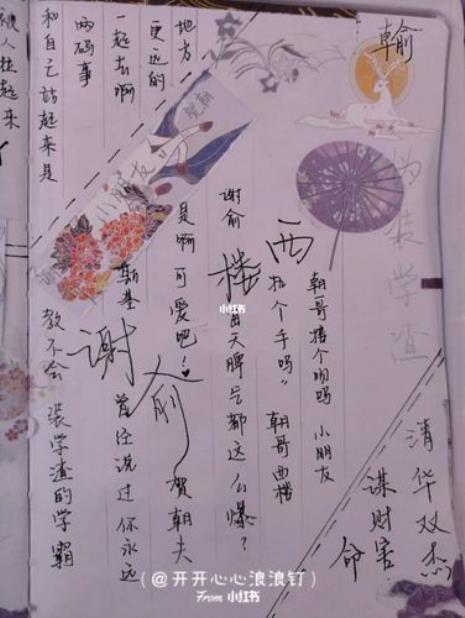 翰俞
伪装学渣
清华双杰
谋财害命
朝哥搭个吻吗 小朋友
西
拉个手吗” 朝哥西楼
谢俞
楼
天脾气都这么爆？
是啊可爱吧！
俞
贺朝夫
谢
曾经说过你永远
教不会 装学渣的学霸
小朋友
地方
更远的
一起去啊
两码事
和自己站起来是
被人拉起来
小红书
(@开开心心浪浪钉)
From 小红书